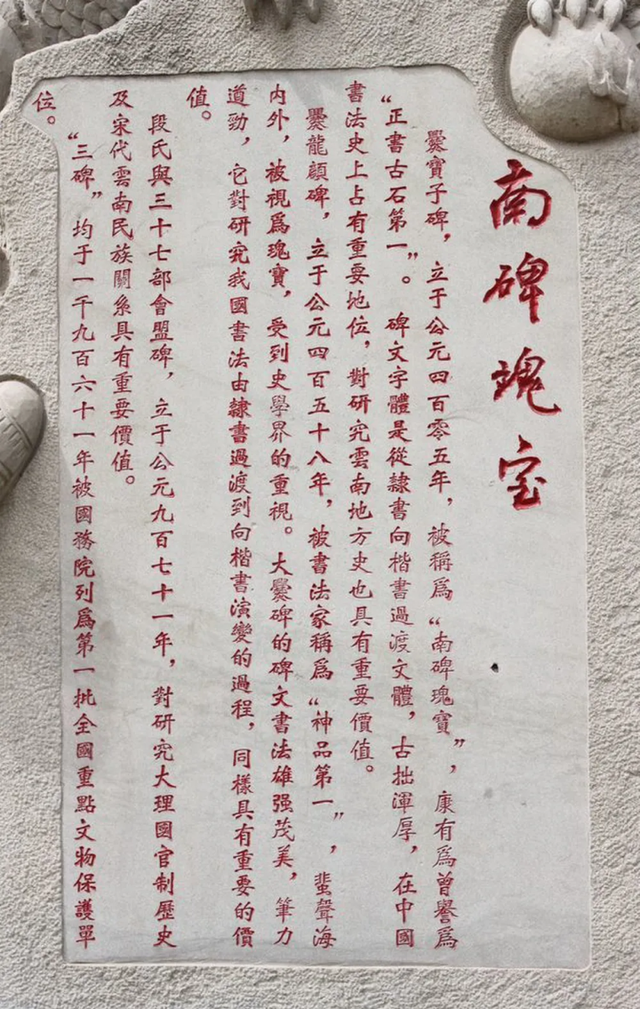 南碑瑰宝
爨寶子碑，立于公元四百零五年，被稱爲“南碑瑰寶”，康有爲曾譽爲
“正書古石第一”。碑文字體是從隸書向楷書過渡文體，古拙渾厚，在中國
書法史上占有重要地位，對研究雲南地方史也具有重要價值。
爨龍顏碑，立于公元四百五十八年，被書法家稱爲“神品第一”，蜚聲海
内外，被視爲瑰寶，受到史學界的重視。大爨碑的碑文書法雄强茂美，筆力
遒勁，它對研究我國書法由隸書過渡到向楷書演變的過程，同樣具有重要的價
值。
段氏與三十七部會盟碑，立于公元九百七十一年，對研究大理國官制歷史
及宋代雲南民族關系具有重要價值。
“三碑”均于一千九百六十一年被國務院列爲第一批全國重點文物保護單
位。